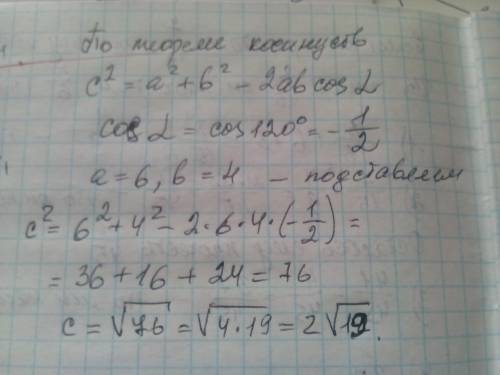 По теореме косинусов
c² = a² + b² - 2ab cos α
cos α = cos 120° = - 1/2
a = 6, b = 4 - подставляем
c² = 6² + 4² - 2 · 6 · 4 · (- 1/2) =
= 36 + 16 + 24 = 76
c = √76 = √4·19 = 2√19.